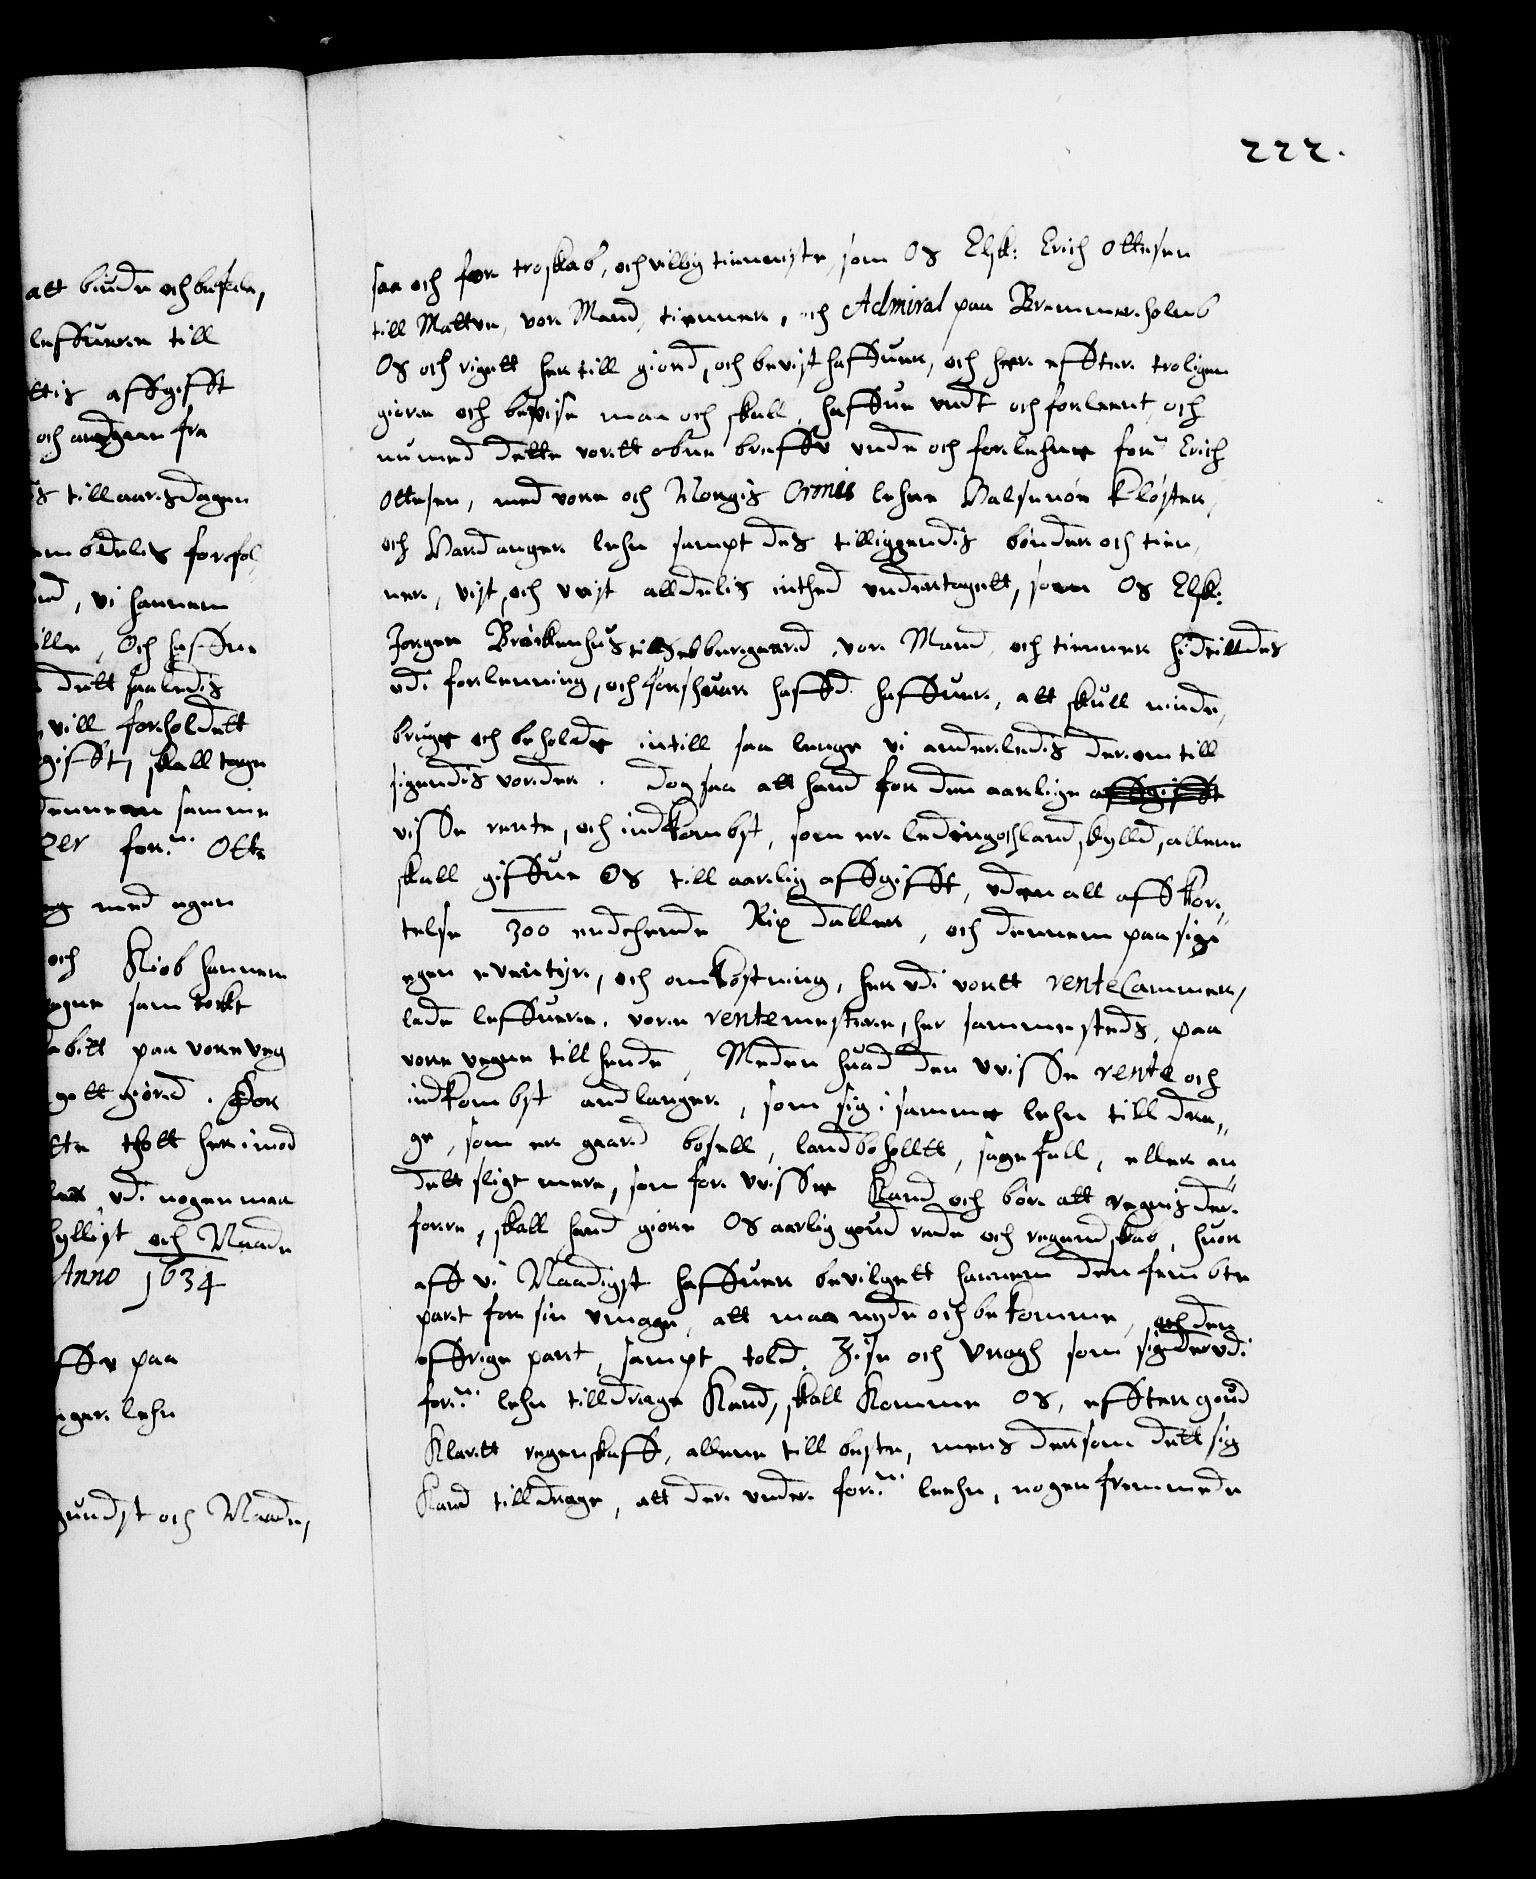 222.
att biude och befale,
leffuere till
ttis affgifft
och andgaar fra
s till aarsdagen
embdelis forfol,
nd, vi hannem
ille, Och haffue
dett saaledis
vill forholdett
gifft, skall tage
dennem samme
per for:ne Otte
eg med egen
och Kiøb hannem
egne sambtockt
labitt paa vore veg
gelt giørd. For
tte tholt her imod
ler udi nogen maa
hyllist och Naade
Anno 1634
ffv paa
nger lehn
gundst och Naade,
saa och for troskab, och villig tienneste, som Os Elsk: Erich Ottesen
till Maltve, vor Mand, tienner, och Admiral paa Bremmerholmb
Os och rigett her till giord, och bevist haffuer, och her effter troligen
giøre och bevise maa och skall, haffue undt och forleent, och
nu med dette vortt obne breffv unde och forlehne for:ne Erich
Ottesen, med vore och Norgis Cronis lehne Halsnøe Kloster,
och Hardanger lehn sampt des tilliggendis bønder och tien,
ner, vist, och uvist alldelis inthed undertagett, som Os Elsk:
Jørgen Brockenhus till Sebbergaard, vor Mand, och tienner hidtilldes
udi forlenning, och forsvar hafft haffuer, att skull niude,
bruge och beholde intill saa lenge vi anderledis derom till
sigendis vorder. Dog saa att hand for den aarlige affgifft
visse rente, och indkombst, som er leding och land skylld, allene
skall giffue Os till aarlig affgifft, uden all affkor,,
telse 300 endehende Rix daller, och dennem paa sige
egen eventyre, och omkostning, her udi vortt rente Cammer,
lade leffuere, vore rentemestere, her sammesteds, paa
vore vegne till hende, Meden huad den uvisse rente och
indkombst andlanger, som sig i samme lehn till dra,,
ge, som er gaard bofell, landboholltt, sagefall, eller an
dett sligt mere, som for uvisse Kand och bør att regnis der,
forre, skall hand giøre Os aarlig goud rede och regendskab, huor
aff vi Naadigst haffuer bevilgett hannem den fembte
part for sin umage, att maa nyde och bekomme, och den
øffrige part, sampt told, Zise och Vragh som sig der udi
for:ne lehn tilldrage Kand, skall Komme Os, effter goud
Klartt regenskaff, allene till beste, mens dersom dett sig
Kand tilldrage, att der under for:ne leehn, nogen fremmede